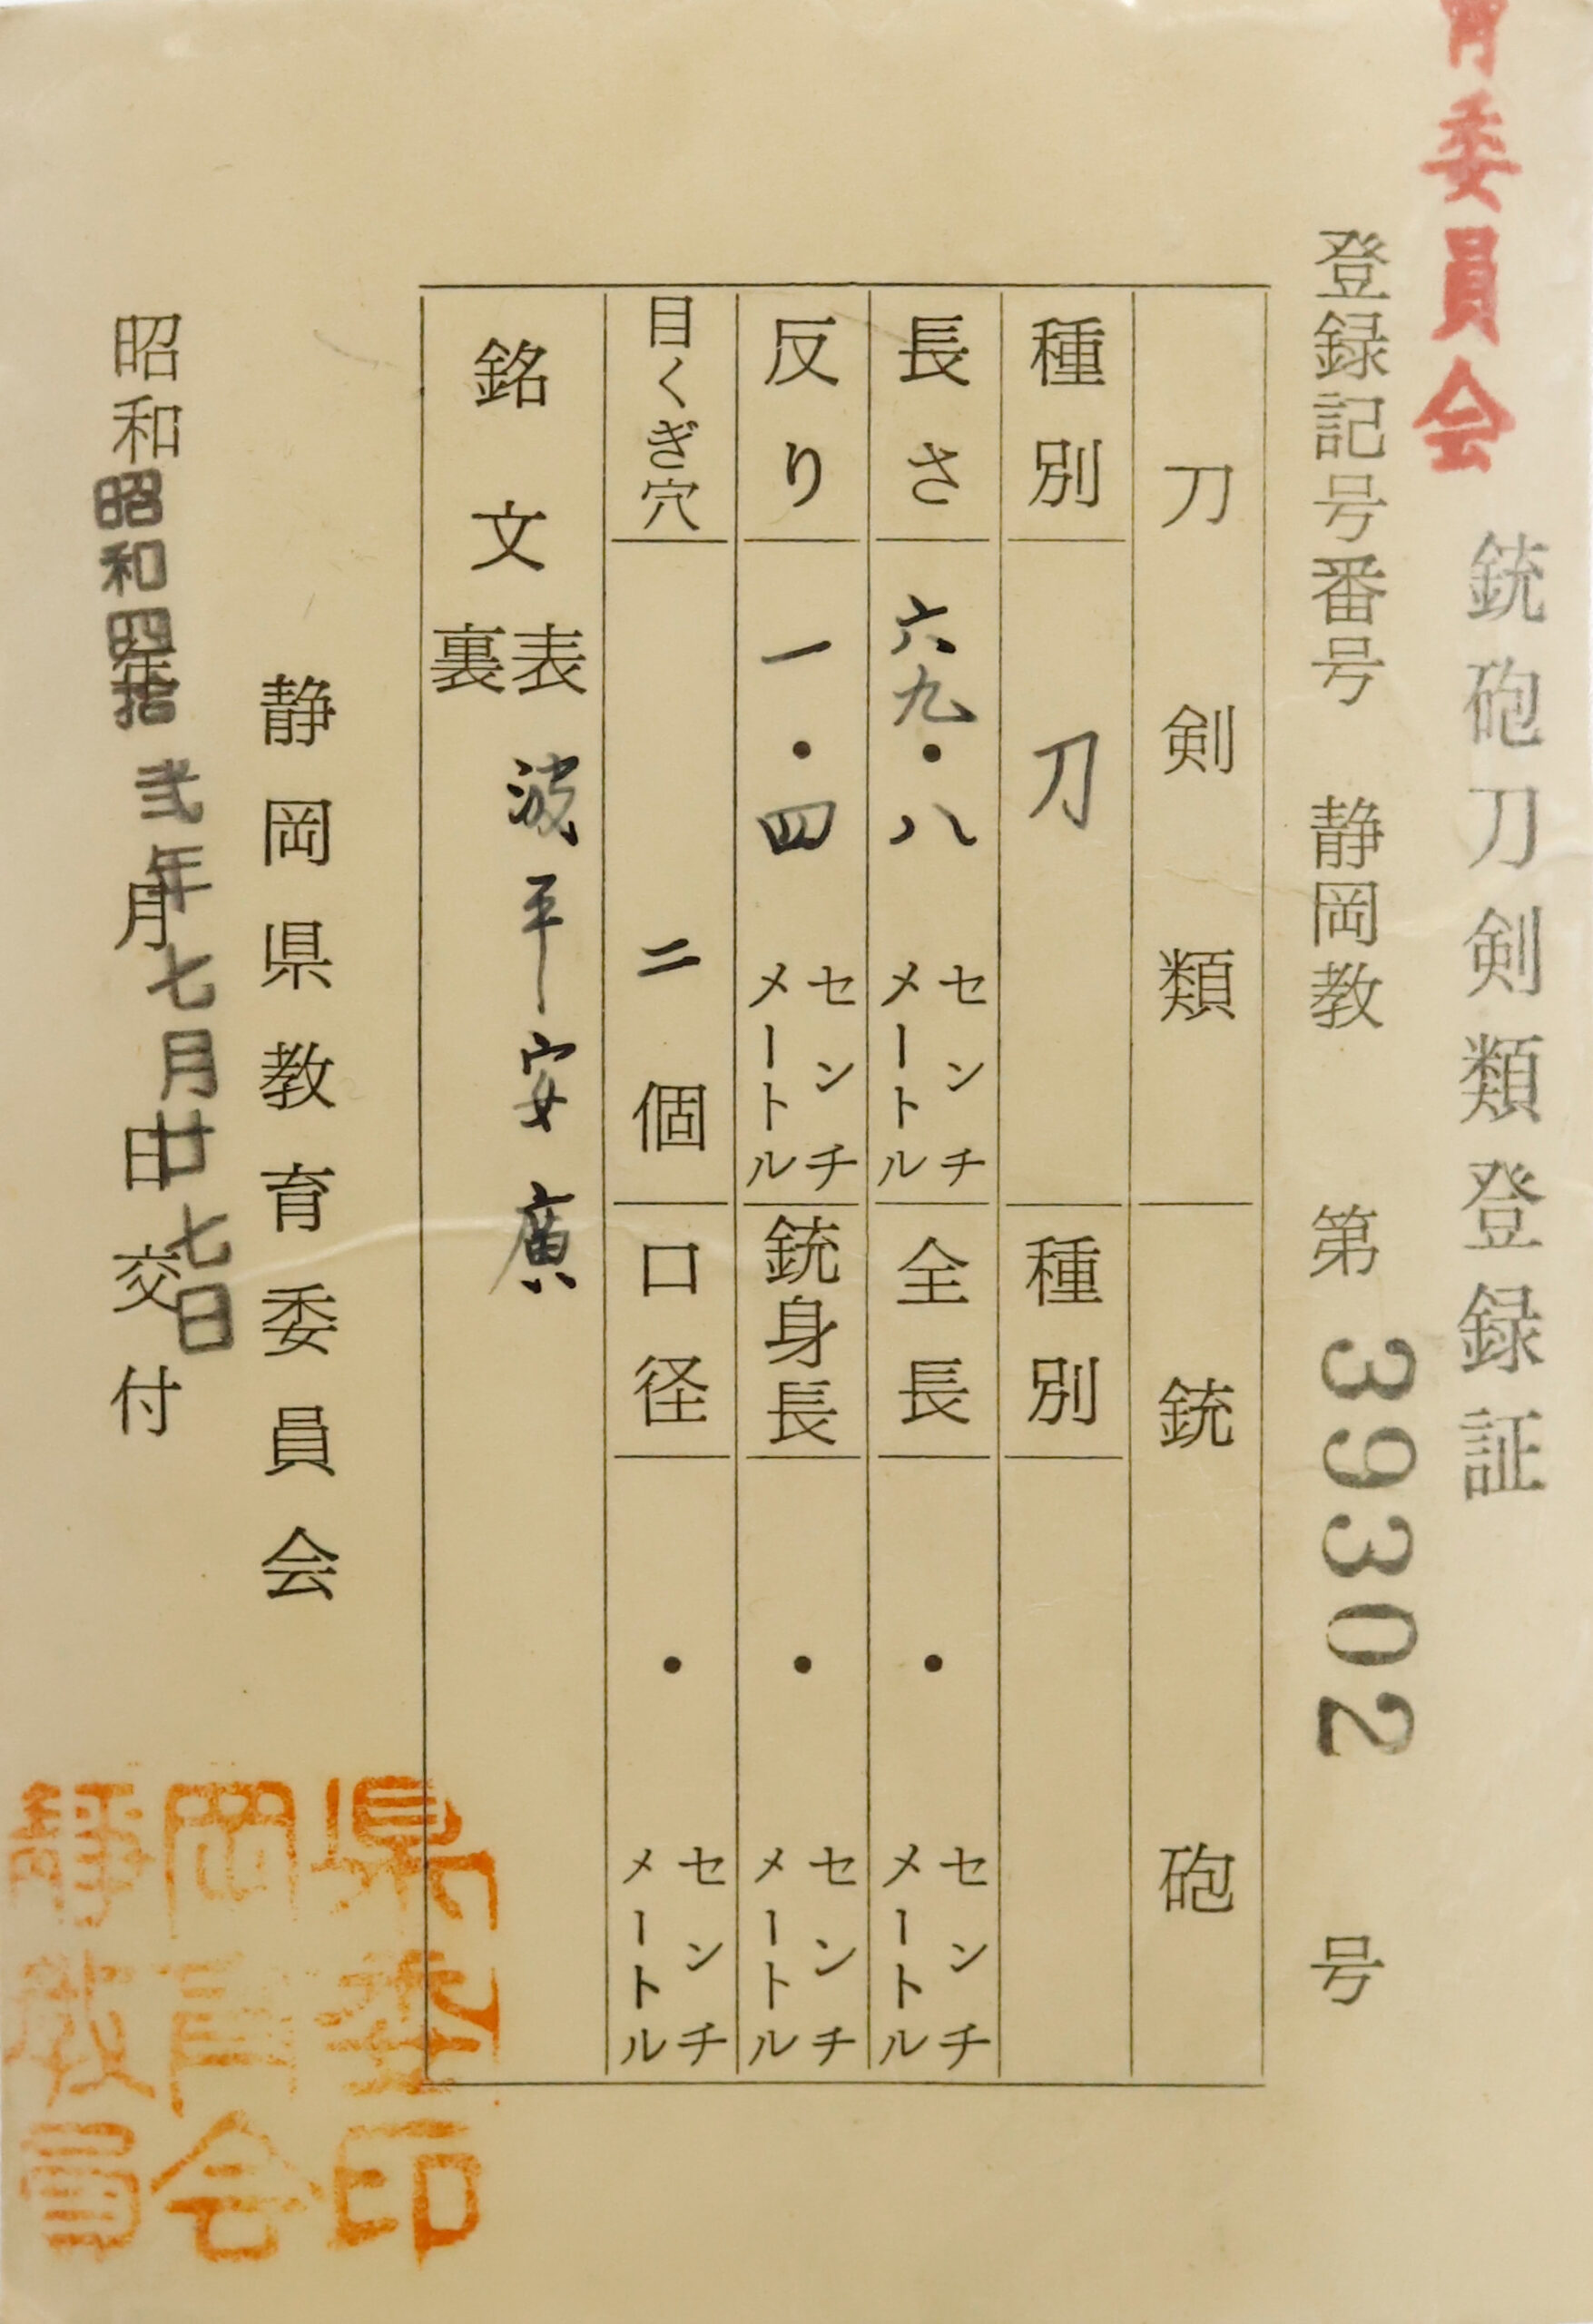 育委員会
銃砲刀剣類登録証
登録記号番号 静岡教 第 39302 号
刀剣類
銃砲
種別 刀
種別
長さ 六九・八 センチメートル
全長 ・ センチメートル
反り 一・四 センチメートル
銃身長 ・ センチメートル
目くぎ穴 二 個
口径 ・ センチメートル
銘文 表 波平安廣
裏
静岡県教育委員会
昭和 年 月 日交付
昭和四拾弐年七月廿七日
静岡県
教育委
員会印